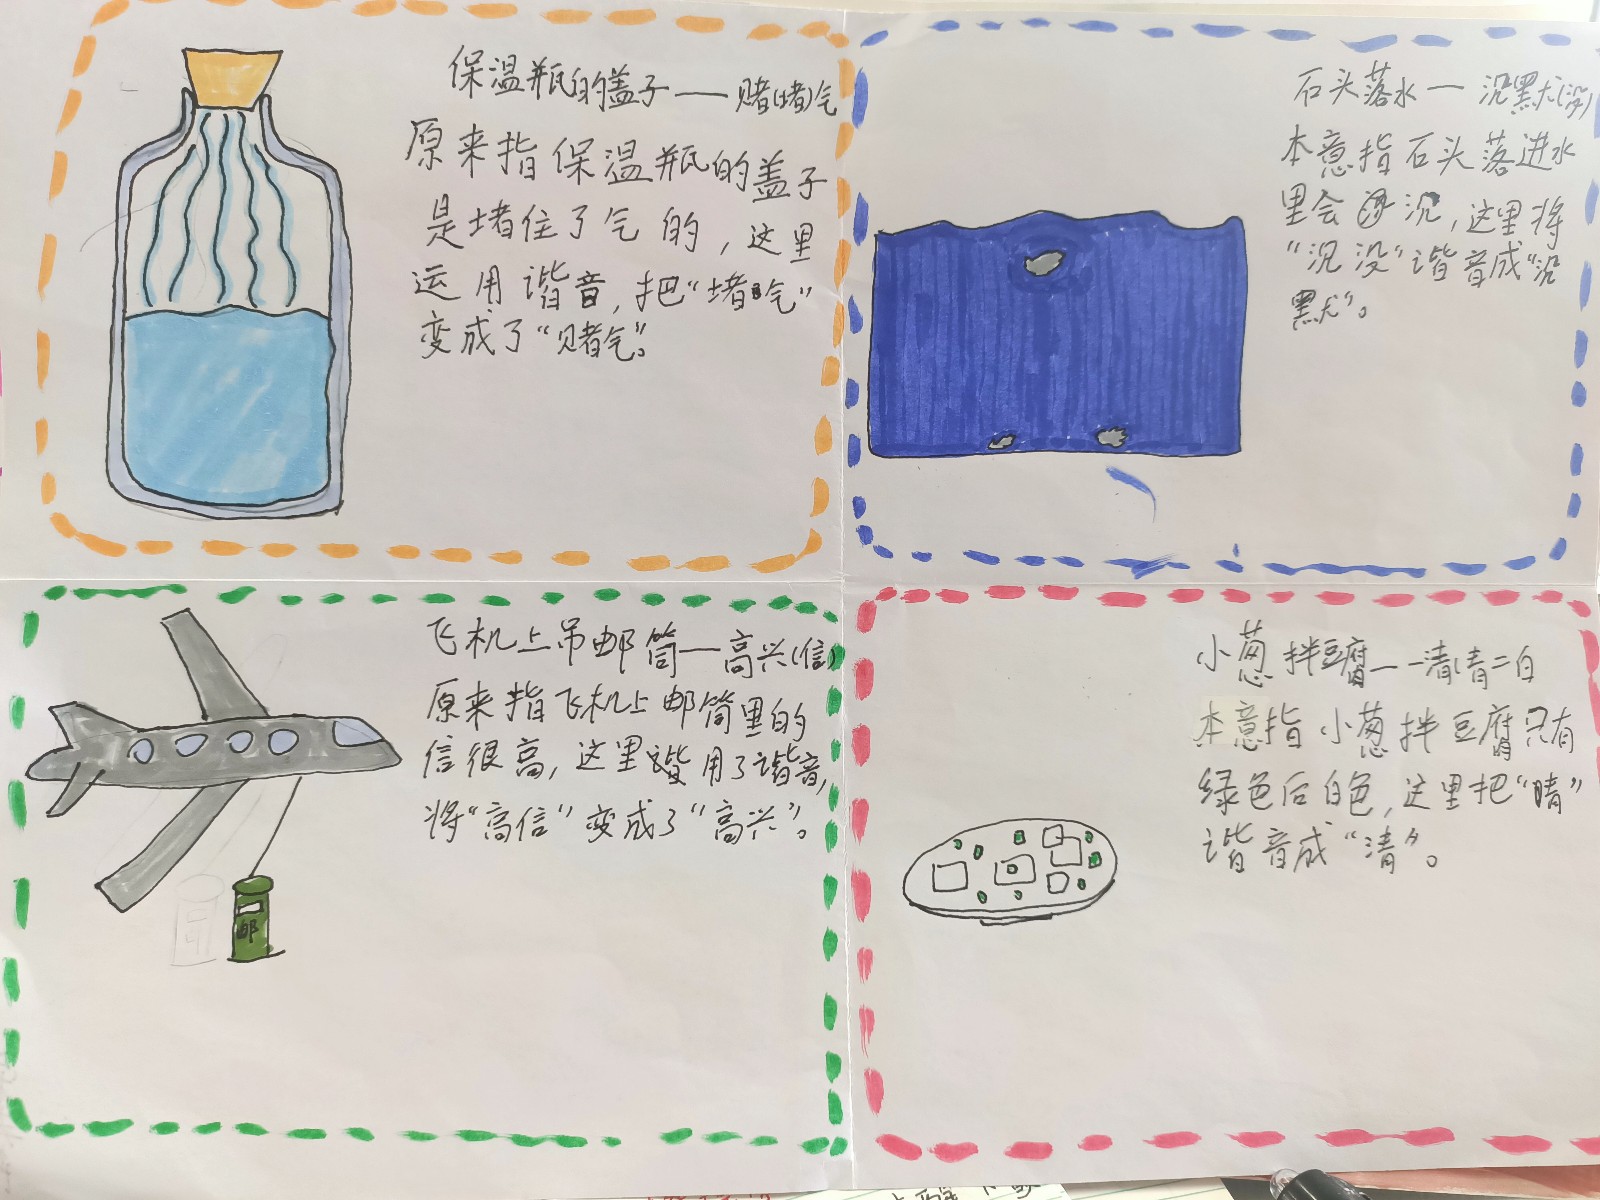 保温瓶的盖子——赌(堵)气
原来指保温瓶的盖子
是堵住了气的，这里
运用谐音，把“堵气”
变成了“赌气”。
石头落水—沉默(没)
本意指石头落进水
里会沉，这里将
“沉没”谐音成“沉
默”。
飞机上吊邮筒—高兴(信)
原来指飞机上邮筒里的
信很高，这里运用了谐音，
将“高信”变成了“高兴”。
邮
小葱拌豆腐——清(青)二白
本意指小葱拌豆腐只有
绿色后白色，这里把“晴”
谐音成“清”。